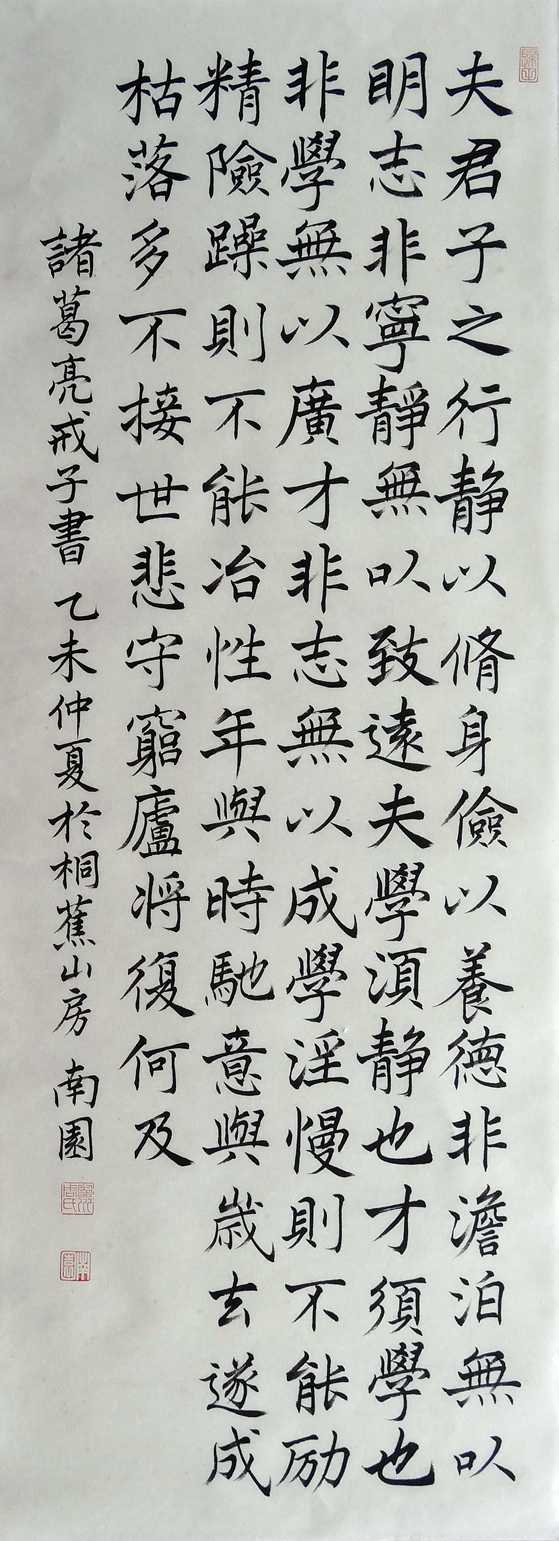 夫君子之行静以脩身儉以養德非澹泊無以
明志非寧靜無以致遠夫學須静也才須學也
非學無以廣才非志無以成學淫慢則不能励
精險躁則不能冶性年與時馳意與歲去遂成
枯落多不接世悲守窮廬将復何及
諸葛亮戒子書 乙未仲夏於桐蕉山房 南園